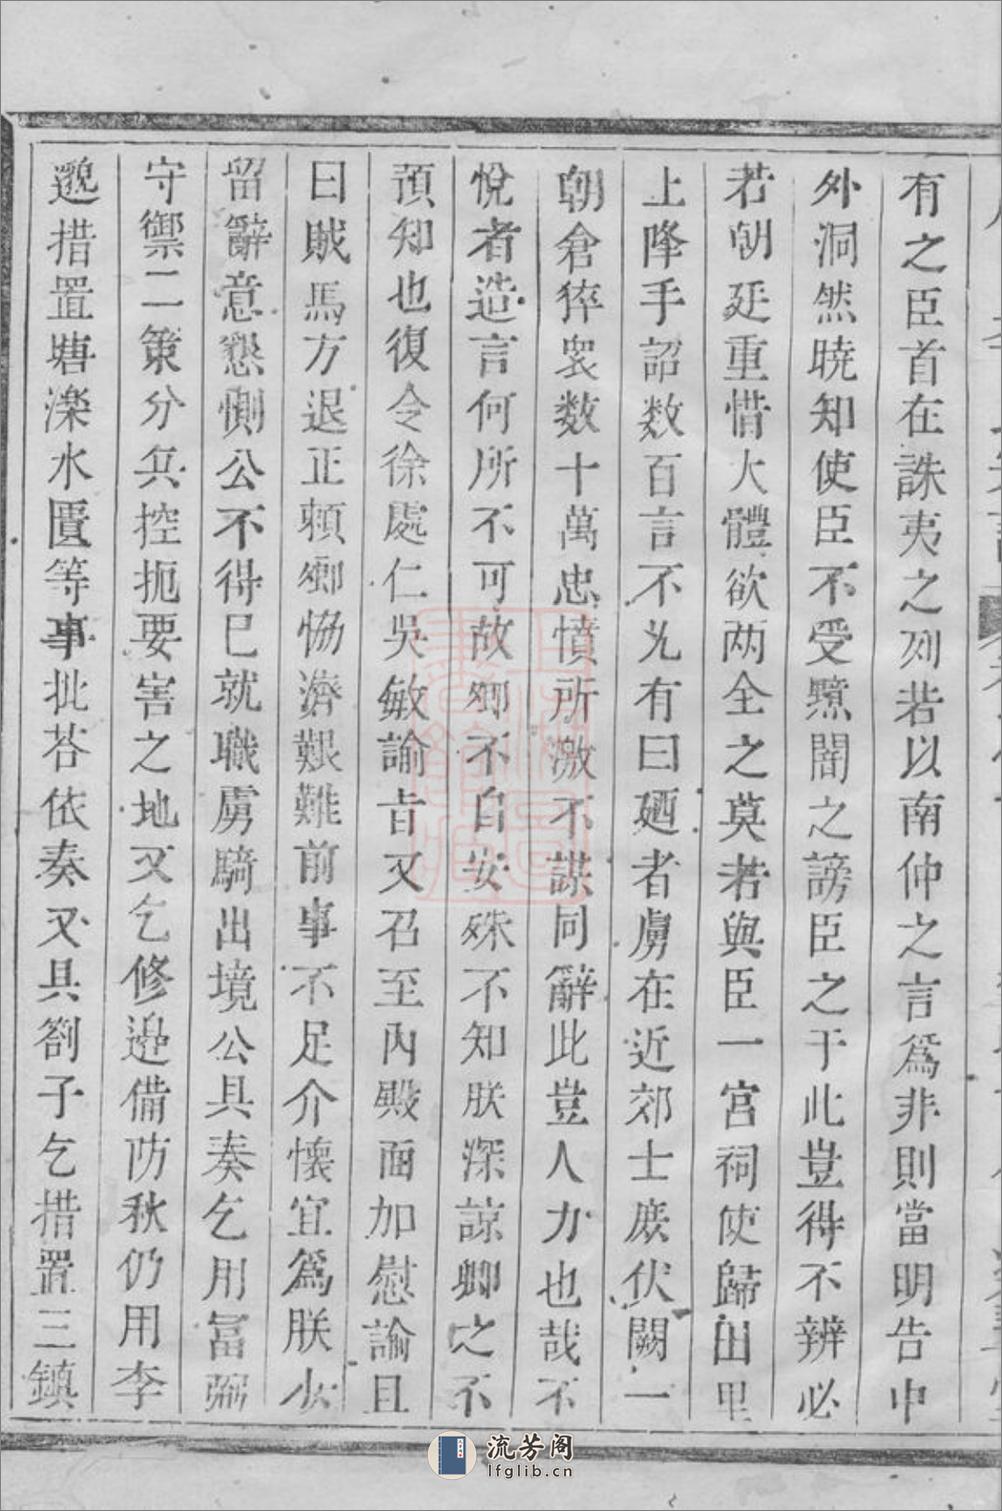 有之臣首在誅夷之列若以南仲之言爲非則當明告中
外洞然曉知使臣不受黯闇之謗臣之于此豈得不辨必
若朝廷重惜大體欲两全之莫若與臣一宮祠使歸田里
上降手詔数百言不允有曰廼者虜在近郊士庶伏闕一
朝倉猝衆数十萬忠憤所激不謀同辭此豈人力也哉不
悅者造言何所不可故卿不自安殊不知朕深諒卿之不
預知也復令徐處仁吳敏諭㫖又召至內殿面加慰諭且
曰賊馬方退正頼卿協濟艱難前事不足介懷宜爲朕少
留辭意懇惻公不得巳就職虜騎出境公具奏乞用富弼
守禦二策分兵控扼要害之地又乞修邉備防秋仍用李
邈措置塘濼水匱等事批荅依奏又具劄子乞措置三鎮
流芳阁
lfglib.cn